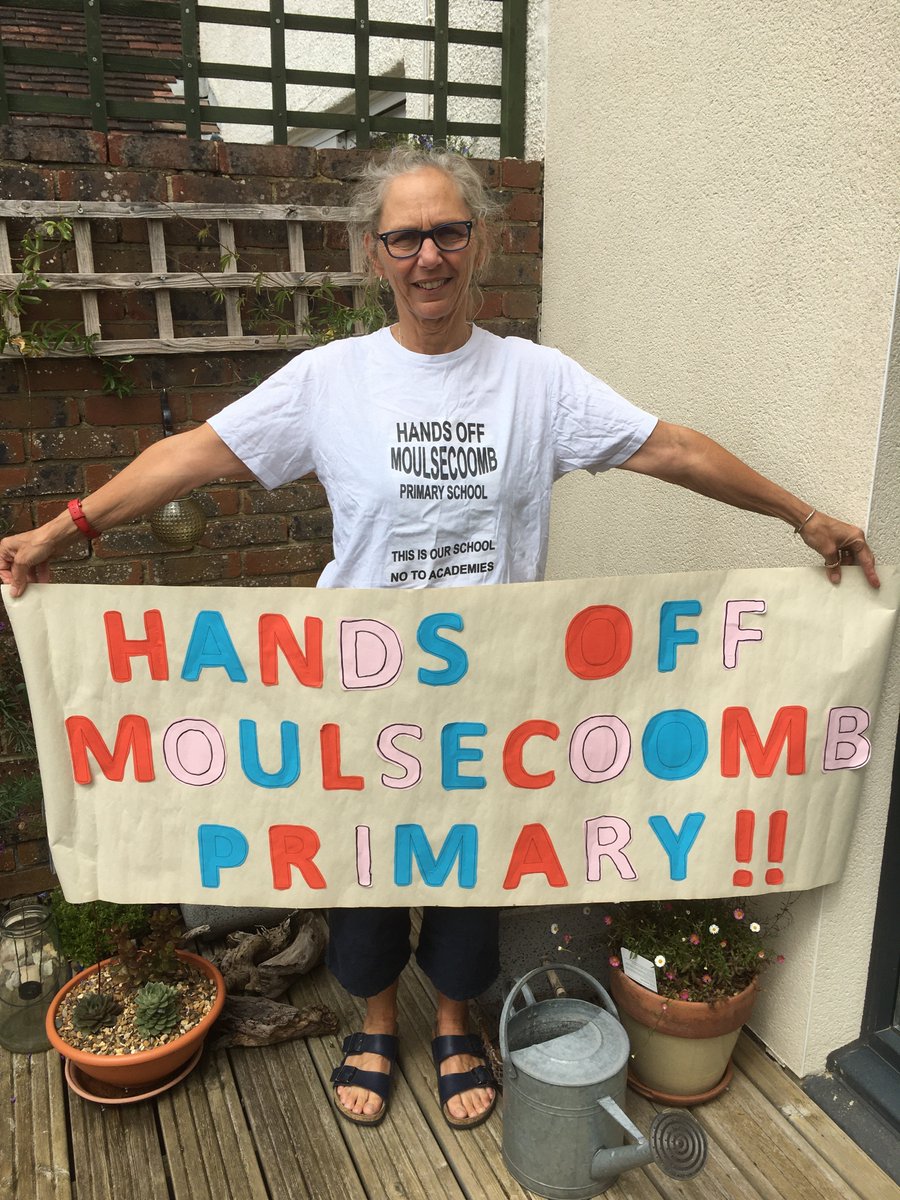 HANDS OFF
MOULSECOOMB
PRIMARY SCHOOL
THIS IS OUR SCHOOL
NO TO ACADEMIES
HANDS OFF
MOULSECOOMB
PRIMARY!!